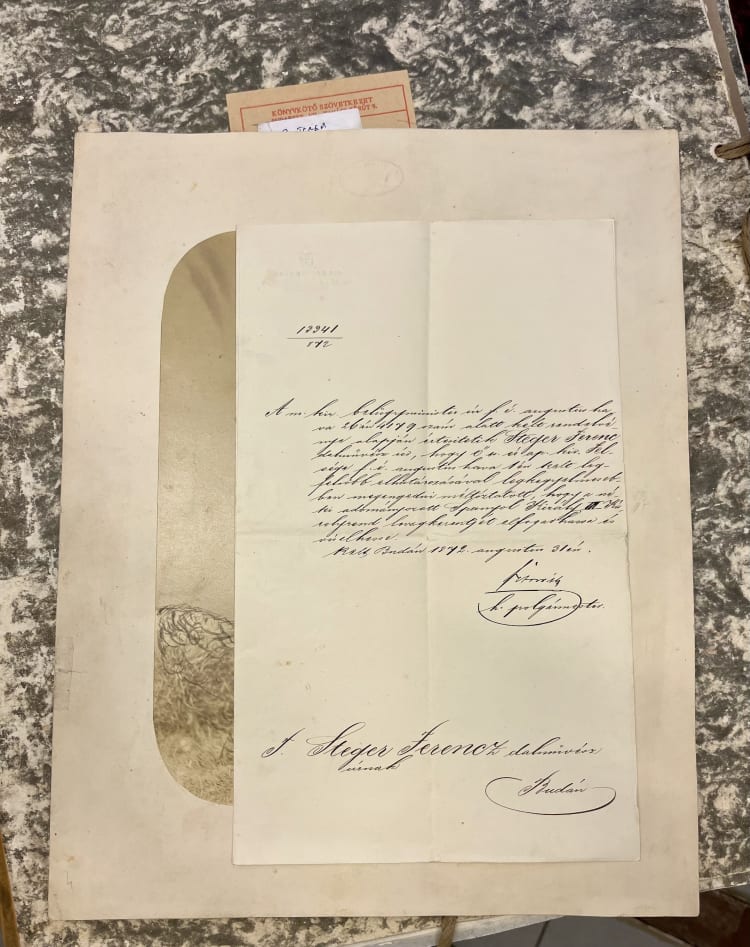 KÖNYVKÖTŐ SZÖVETKEZET
12341
872
A m. kir. belügyminister úr f. é. augustus ha
va 26án 4479 szám alatt kelt rendelvé
nye alapján értesítetik Steger Ferenc
dalművész úr, hogy Ő cs. és ap. kir. Fel
sége f. é. augustus hava 1én kelt leg
felsőbb elhatározásával legkegyelmeseb
ben megengedni méltóztatott, hogy a né
ki adományozott Spanyol Király III. Ká
roly rend lovagkeresztjét elfogadhassa és
viselhesse.
Kelt Budán 1872. augustus 31én.
h. polgármester.
T. Steger Ferencz dalművész
úrnak
Budán